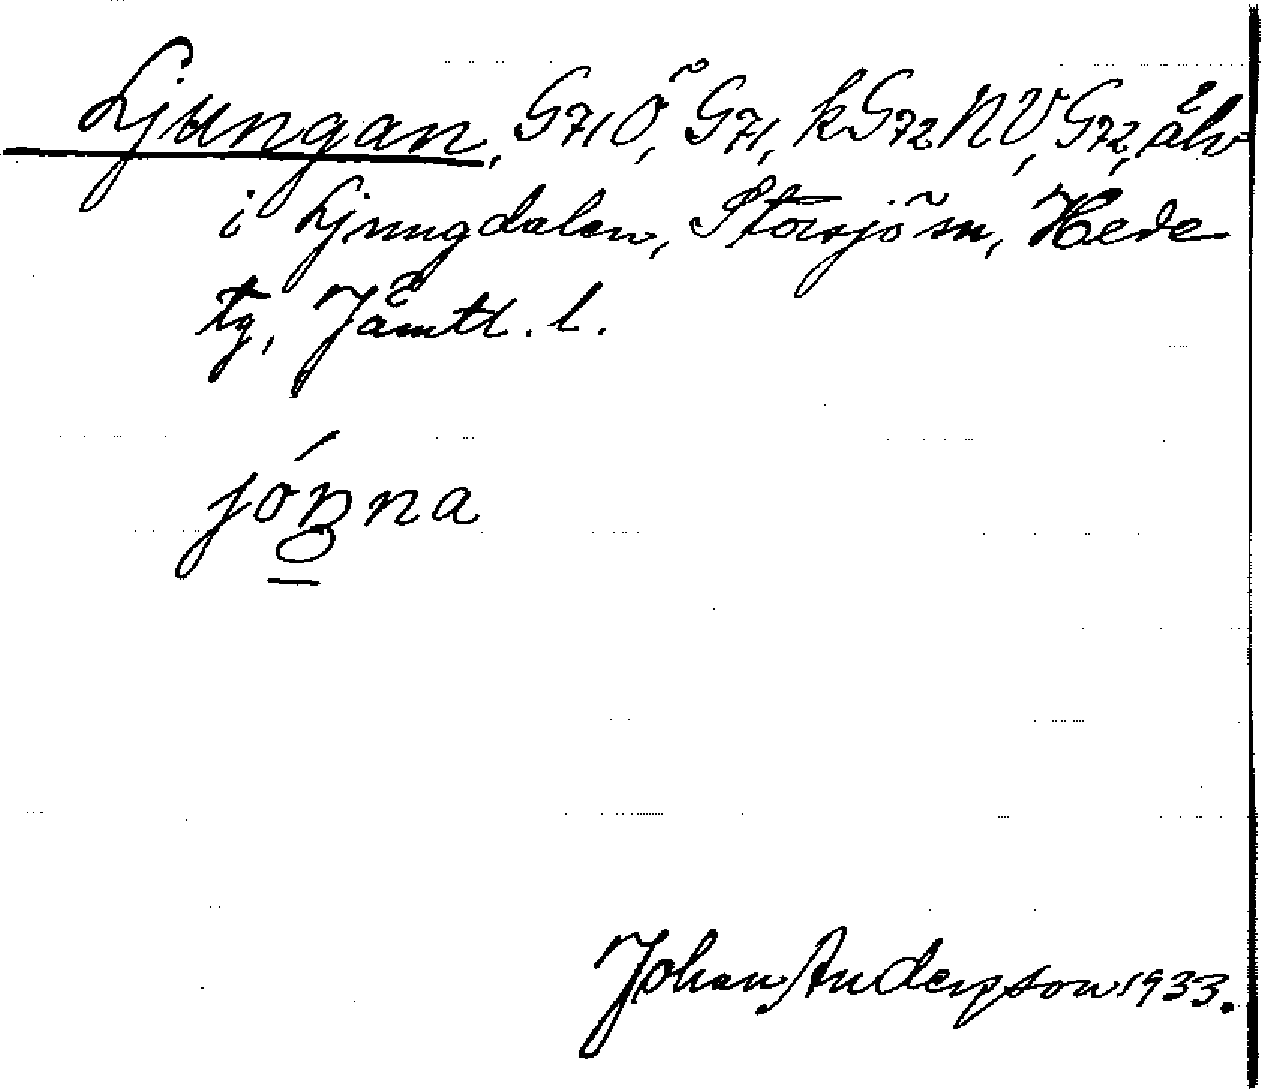 Ljungan, G71Ö, G71, kG72NV, G72, älv
i Ljungdalen, Storsjö sn, Hede
tg, Jämtl. l.
Johan Anderson 1933.